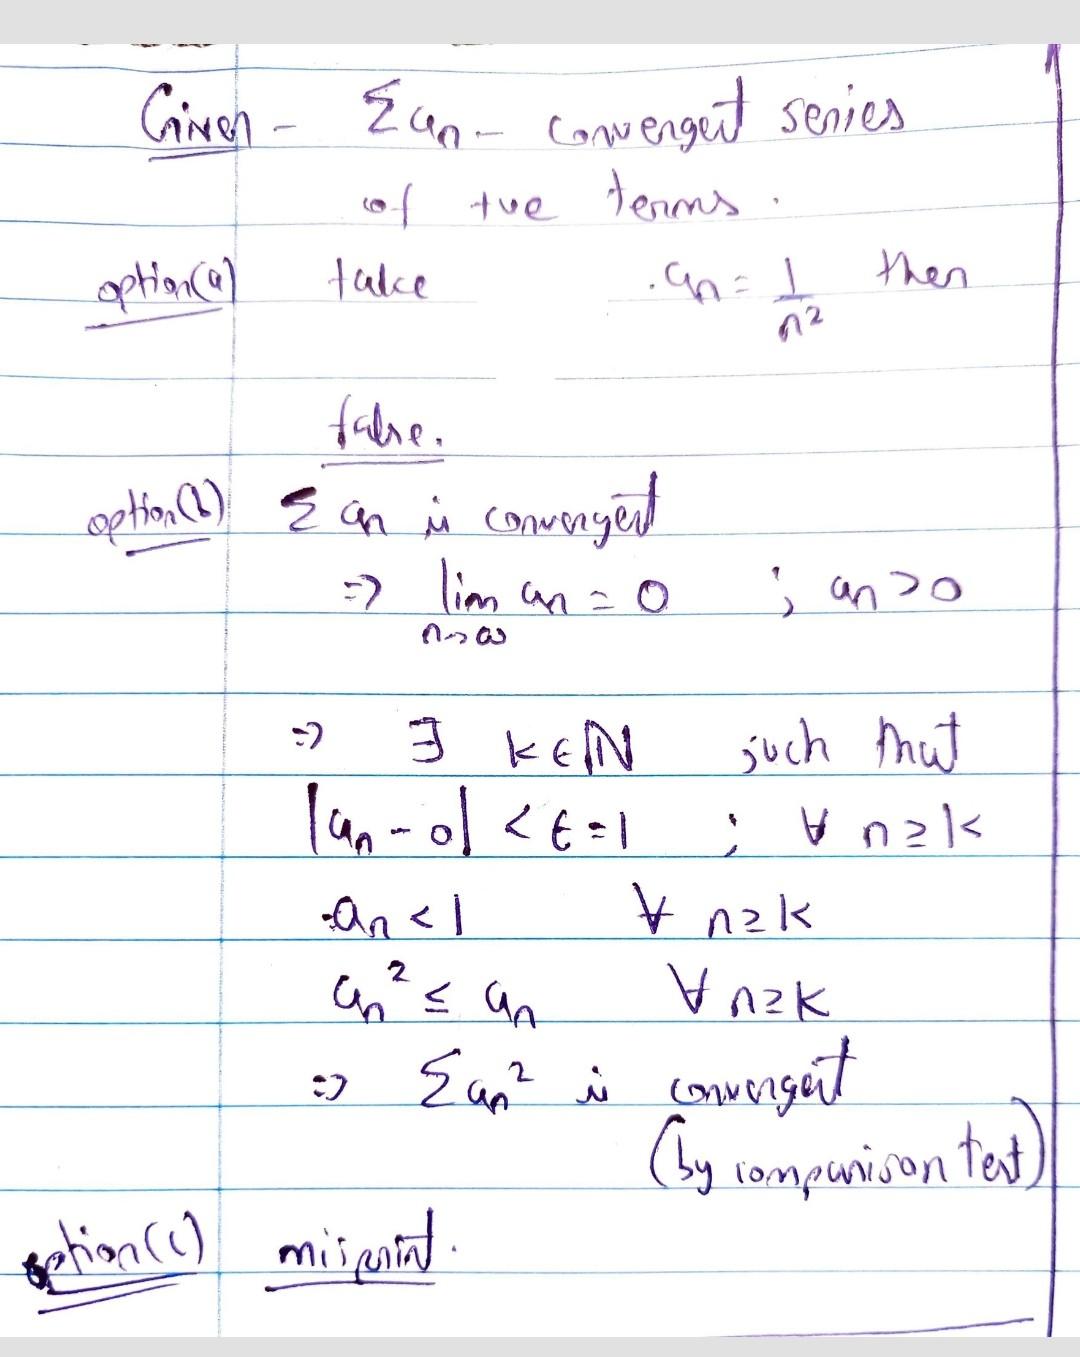 Given - Σan - convergent series
of +ve terms.
option(a) take an = 1/n² then
false.
option(b) Σ an is convergent
=> lim an = 0 ; an > 0
n→∞
=> ∃ k∈ℕ such that
|an - 0| < ϵ = 1 ; ∀ n≥k
an < 1 ∀ n≥k
an² ≤ an ∀ n≥k
=> Σan² is convergent
(by comparison test)
option(c) misprint.